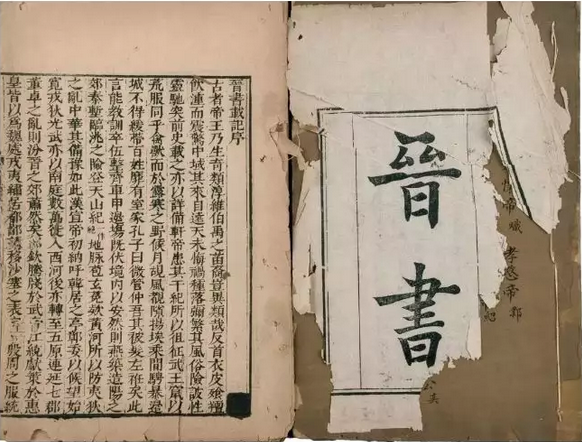 晉書
帝熾 孝愍帝鄴
晉書載記序
古者帝王乃生奇類淳維伯禹之苗裔豈異類哉反首衣皮飡羶
飲湩而震驚中域其來自遠天未悔禍種落彌繁其風俗險詖性
靈馳突前史載之亦以詳備軒帝患其干紀所以徂征武王竄以
荒服同乎禽獸而於露寒之野候月覘風覩隙揚埃乘間騁暴邊
城不得緩帶百姓靡有室家孔子曰微管仲吾其被髮左衽矣此
言能教訓卒伍整齊車甲邊場既伏境內以安然則燕築造陽之
郊秦塹臨洮之險登天山紀地脉苞玄菟款黃河所以防夷狄
之亂中華其備豫如此漢宣帝初納呼韓居之亭鄣委以候望始
寬戎狄光武亦以南庭數萬徙入西河後亦轉至五原連延七郡
董卓之亂則汾晉之郊蕭然矣郭欽騰牋於武帝江統獻策於惠
皇皆以爲魏處戎夷繡居都鄙請移沙塞之表定一殷周之服統